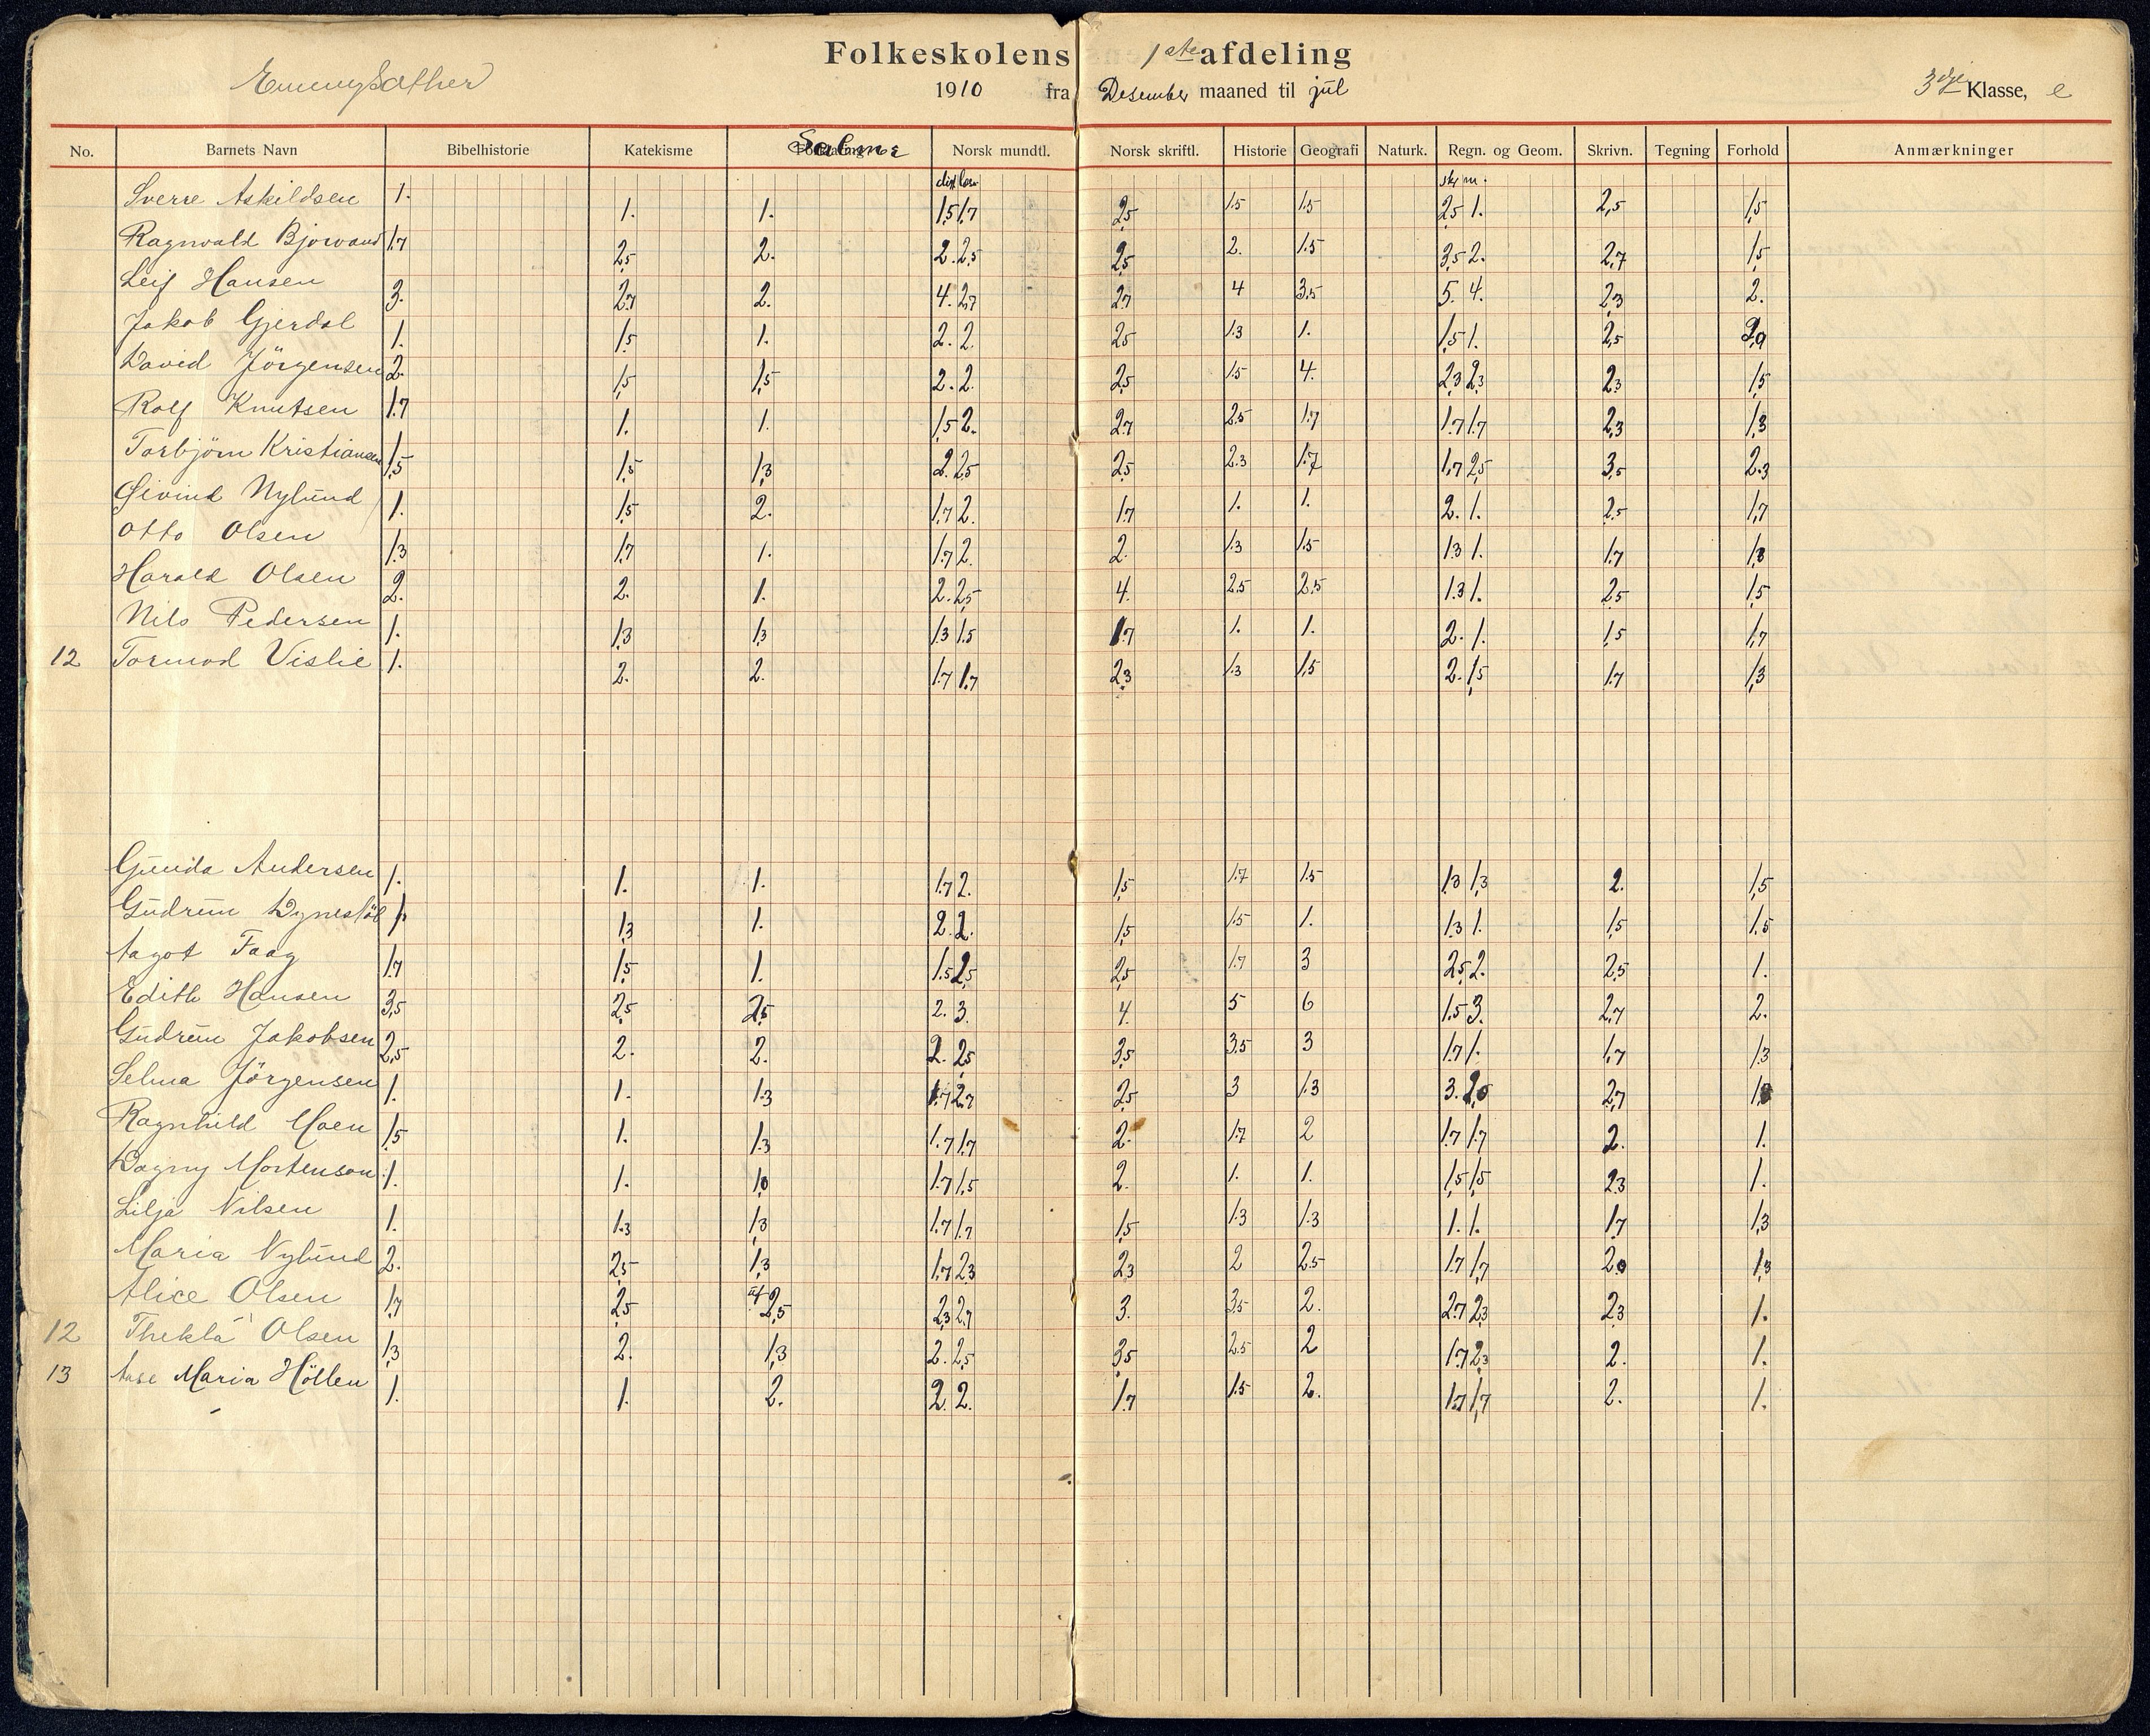 Folkeskolens 1ste afdeling
Emmy Sæther 1910 fra Desember maaned til jul 3dje Klasse, e
No. Barnets Navn Bibelhistorie Katekisme Salme Norsk mundtl. Norsk skriftl. Historie Geografi Naturk. Regn. og Geom. Skrivn. Tegning Forhold Anmærkninger
skr m.
Sverre Askildsen 1. 1. 1. 1,5 1,7 2,5 1.5 1.5 2,5 1. 2,5 1,5
Ragnvald Bjorvand 1,7 2,5 2. 2. 2,5 2,5 2. 1.5 3,5 2. 2,7 1,5
Leif Hansen 3. 2,7 2. 4. 2,7 2,7 4 3,5 5. 4. 2,3 2.
Jakob Gjerdal 1. 1,5 1. 2. 2. 2,5 1.3 1. 1,5 1. 2,5
David Jörgensen 2. 1,5 1,5 2. 2. 2,5 1.5 4. 2,3 2,3 2,3 1,5
Rolf Knutsen 1.7 1. 1. 1,5 2. 2,7 2.5 1.7 1.7 1.7 2,3 1,3
Torbjörn Kristiansen 1,5 1,5 1,3 2. 2,5 2,5 2.3 1.7 1,7 2,5 3,5 2.3
Øivind Nylund 1. 1,5 2. 1,7 2. 1,7 1. 1. 2. 1. 2,5 1,7
Otto Olsen 1.3 1,7 1. 1.7 2. 2. 1.3 1.5 1.3 1. 1,7 1,3
Harald Olsen 2. 2. 1. 2. 2,5 4. 2.5 2.5 1.3 1. 2,5 1,5
Nils Pedersen 1. 1,3 1,3 1.3 1.5 1.7 1. 1. 2. 1. 1,5 1,7
12 Tormod Vislie 1. 2. 2. 1.7 1.7 2,3 1.3 1,5 2. 1,5 1.7 1,3
Gunda Andersen 1. 1. 1. 1.7 2. 1,5 1.7 1.5 1,3 1,3 2. 1,5
Gudrun Dynestöl 1. 1,3 1. 2. 2. 1,5 1.5 1. 1.3 1. 1,5 1.5
Aagot Faag 1.7 1,5 1. 1.5 2,5 2,5 1.7 3 2,5 2. 2,5 1.
Edith Hansen 3,5 2,5 2,5 2. 3. 4. 5 6 1.5 3. 2,7 2.
Gudrun Jakobsen 2,5 2. 2. 2. 2,5 3,5 3.5 3 1.7 1. 1,7 1,3
Selma Jörgensen 1. 1. 1.3 1.7 2,7 2,5 3 1.3 3. 2,7
Ragnhild Moen 1,5 1. 1,3 1.7 1,7 2. 1.7 2 1.7 1.7 2. 1.
Dagny Mortenson 1. 1. 1.7 1,5 2. 1. 1. 1,5 1,5 2,3 1.
Lilja Nilsen 1. 1.3 1,3 1.7 1.7 1,5 1.3 1.3 1. 1. 1,7 1,3
Maria Nylund 2. 2,5 1,3 1,7 2,3 2,3 2 2.5 1.7 1,7 1,3
Alice Olsen 1,7 2,5 2,5 2,3 2,7 3. 3.5 2. 2.7 2,3 2,3 1.
12 Thekla Olsen 1,3 2. 1,3 2. 2,5 3,5 2.5 2 1.7 2,3 2. 1.
13 Aase Maria Höllen 1. 1. 2. 2. 2. 1.7 1.5 2. 1.7 1,7 2. 1.